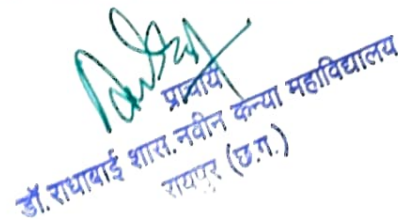 प्राचार्य
डॉ. राधाबाई शास. नवीन कन्या महाविद्यालय
रायपुर (छ.ग.)